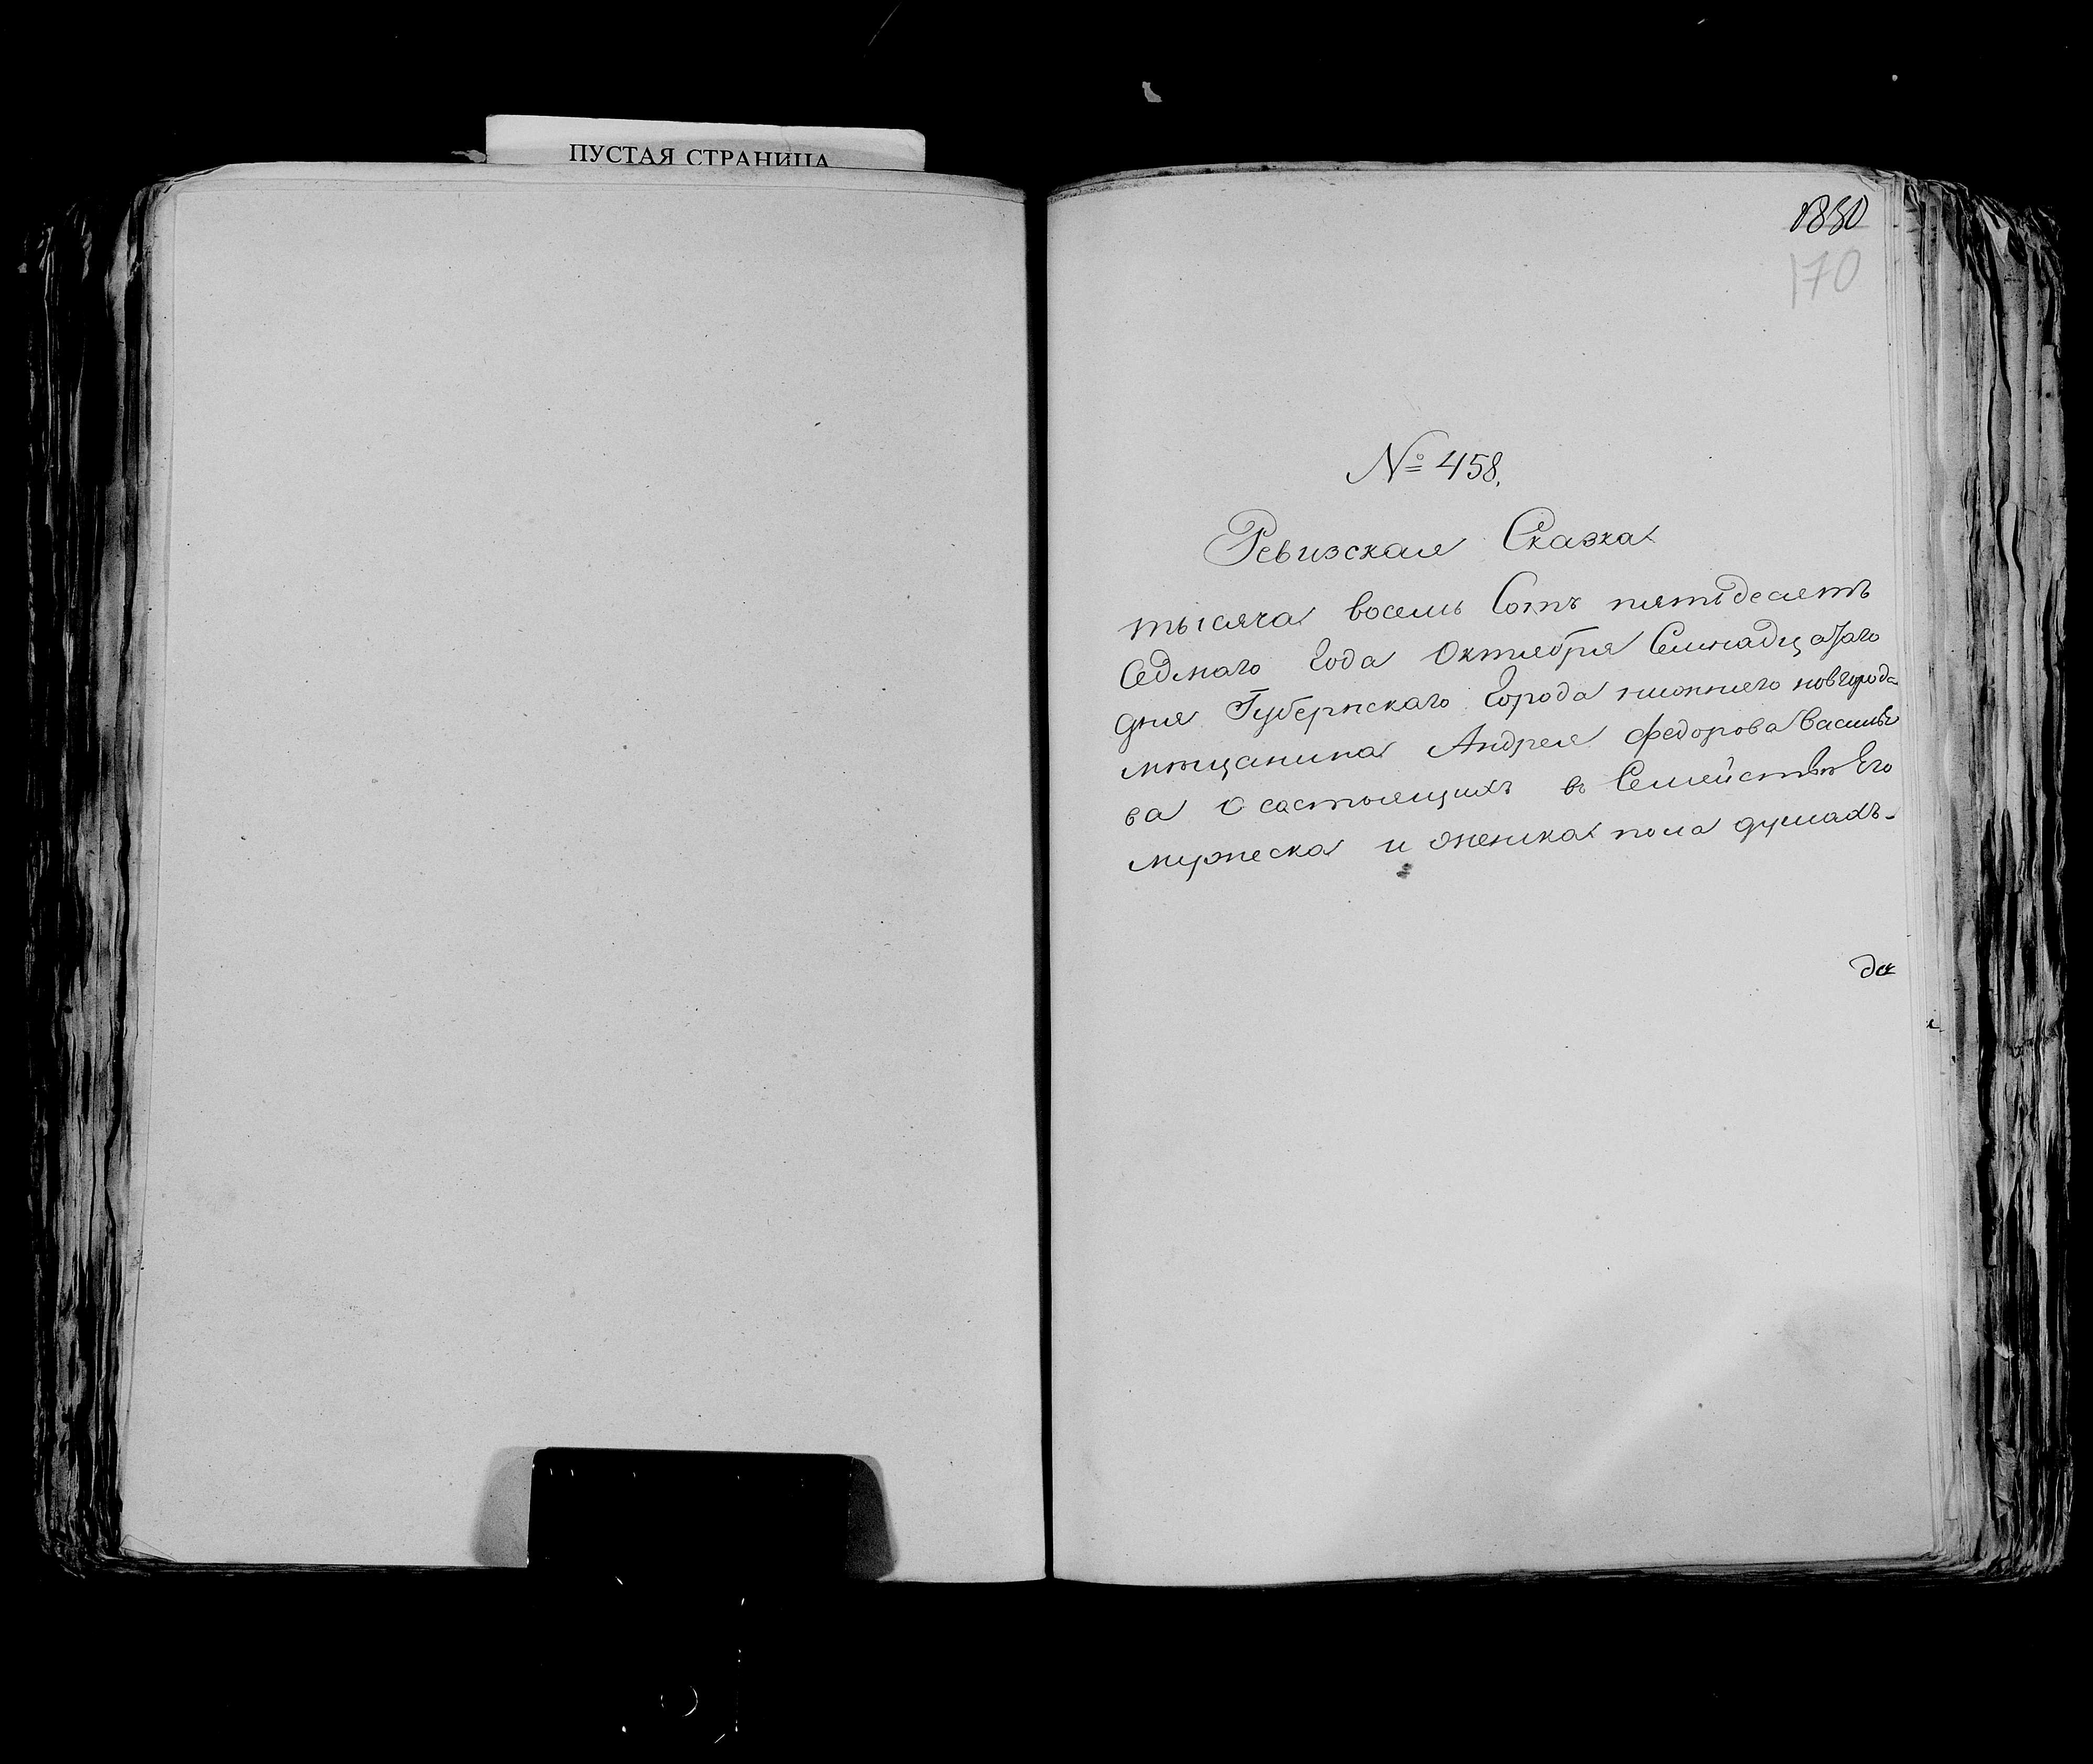 ПУСТАЯ СТРАНИЦА
170
№ 458.
Ревизская Сказка
тысяча восемь Сотъ пятьдесятъ
Седмаго Года Октября Семнадцатаго
дня Губернскаго Города нижнего новгорода
мѣщанина Андрея федорова Василье
ва О састоящихъ въ Семействѣ Его
мужеска и женска пола душахъ-